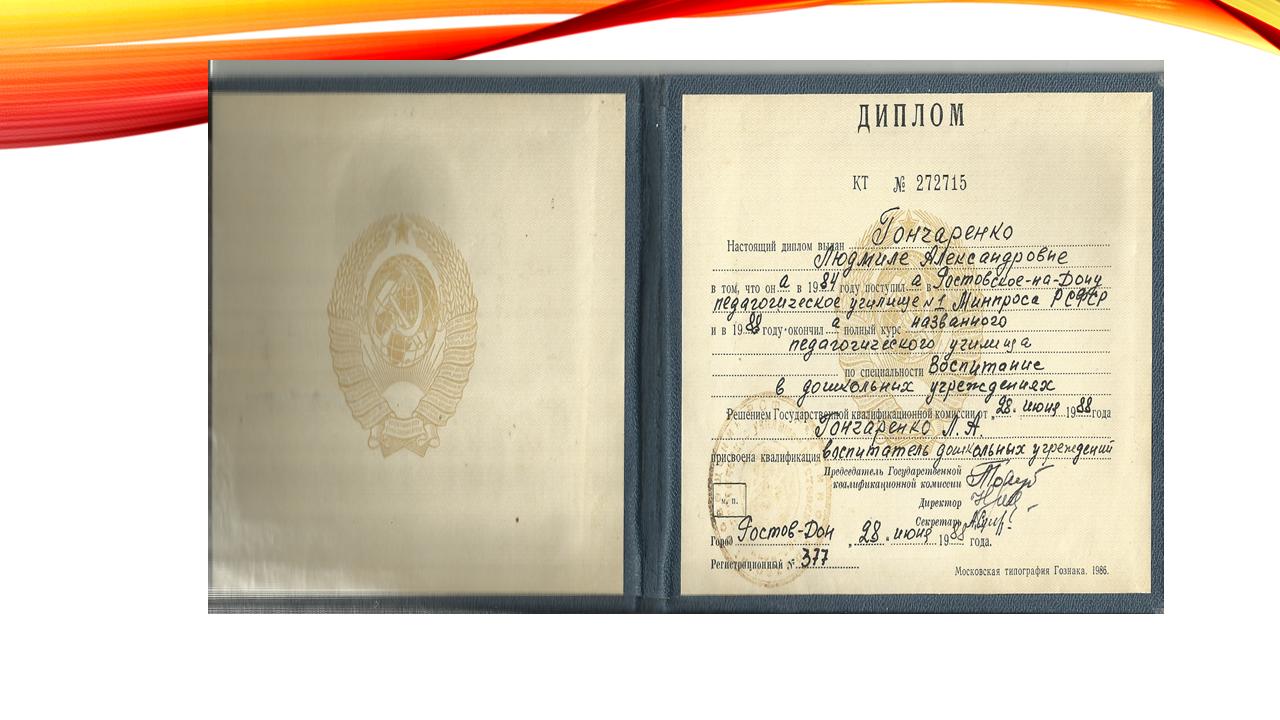 ДИПЛОМ
КТ № 272715
Настоящий диплом выдан Гончаренко
Людмиле Александровне
в том, что он а в 1984 году поступил а в Ростовское-на-Дону
педагогическое училище №1 Минпроса РСФСР
и в 1988 году окончил а полный курс названного
педагогического училища
по специальности Воспитание
в дошкольных учреждениях
Решением Государственной квалификационной комиссии от „28“ июня 1988 года
Гончаренко Л. А.
присвоена квалификация воспитатель дошкольных учреждений
Председатель Государственной
квалификационной комиссии
Директор
м. п.
Секретарь
Город Ростов-Дон „28“ июня 1988 года.
Регистрационный № 377
Московская типография Гознака. 1986.